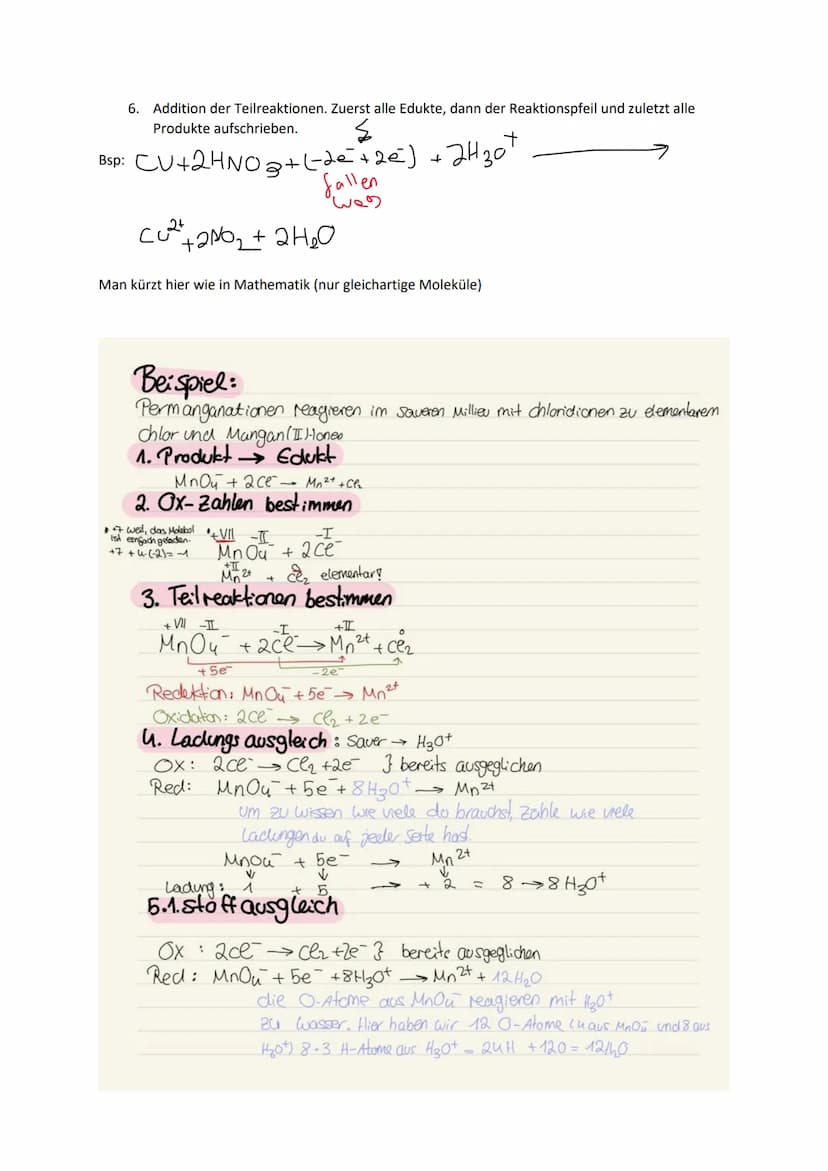 6. Addition der Teilreaktionen. Zuerst alle Edukte, dann der Reaktionspfeil und zuletzt alle
Produkte aufschrieben.
Bsp: CU+2HNO3+(-2e⁻+2e⁻) + 2H3O⁺ ⟶
fallen
weg
Cu²⁺+2NO2 + 2H2O
Man kürzt hier wie in Mathematik (nur gleichartige Moleküle)
Beispiel:
Permanganationen reagieren im saueren Millieu mit chloridionen zu elementarem
Chlor und Mangan(II)-Ionen
1. Produkt → Edukt
MnO4⁻ + 2Cl⁻ → Mn²⁺ + Cl2
2. Ox-Zahlen bestimmen
+7 weil, das Molekül
ist einfach geladen.
+7 + 4·(-2) = -1
+VII -II -I
MnO4⁻ + 2Cl⁻
+II 0
Mn²⁺ + Cl2 elementar!
3. Teilreaktionen bestimmen
+VII -II -I +II 0
MnO4⁻ + 2Cl⁻ → Mn²⁺ + Cl2
+5e⁻ -2e⁻
Redektion: MnO4⁻ + 5e⁻ → Mn²⁺
Oxidation: 2Cl⁻ → Cl2 + 2e⁻
4. Ladungsausgleich: Sauer → H3O⁺
Ox: 2Cl⁻ → Cl2 + 2e⁻ } bereits ausgeglichen
Red: MnO4⁻ + 5e⁻ + 8H3O⁺ → Mn²⁺
um zu wissen wie viele do brauchst, zähle wie viele
Ladungen du auf jeder Seite hast.
MnO4⁻ + 5e⁻ → Mn²⁺
Ladung: 1 + 5 → + 2 = 8 → 8 H3O⁺
5.1. Stoffausgleich
Ox : 2Cl⁻ → Cl2 + 2e⁻ } bereits ausgeglichen
Red: MnO4⁻ + 5e⁻ + 8H3O⁺ → Mn²⁺ + 12H2O
die O-Atome aus MnO4⁻ reagieren mit H3O⁺
zu Wasser. Hier haben wir 12 O-Atome (4 aus MnO4⁻ und 8 aus
H3O⁺) 8·3 H-Atome aus H3O⁺ = 24H + 12O = 12H2O